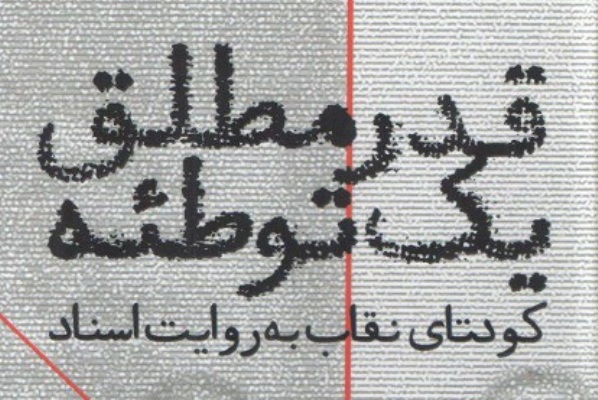 قدر مطلق
یک توطئه
کودتای نقاب به روایت اسناد